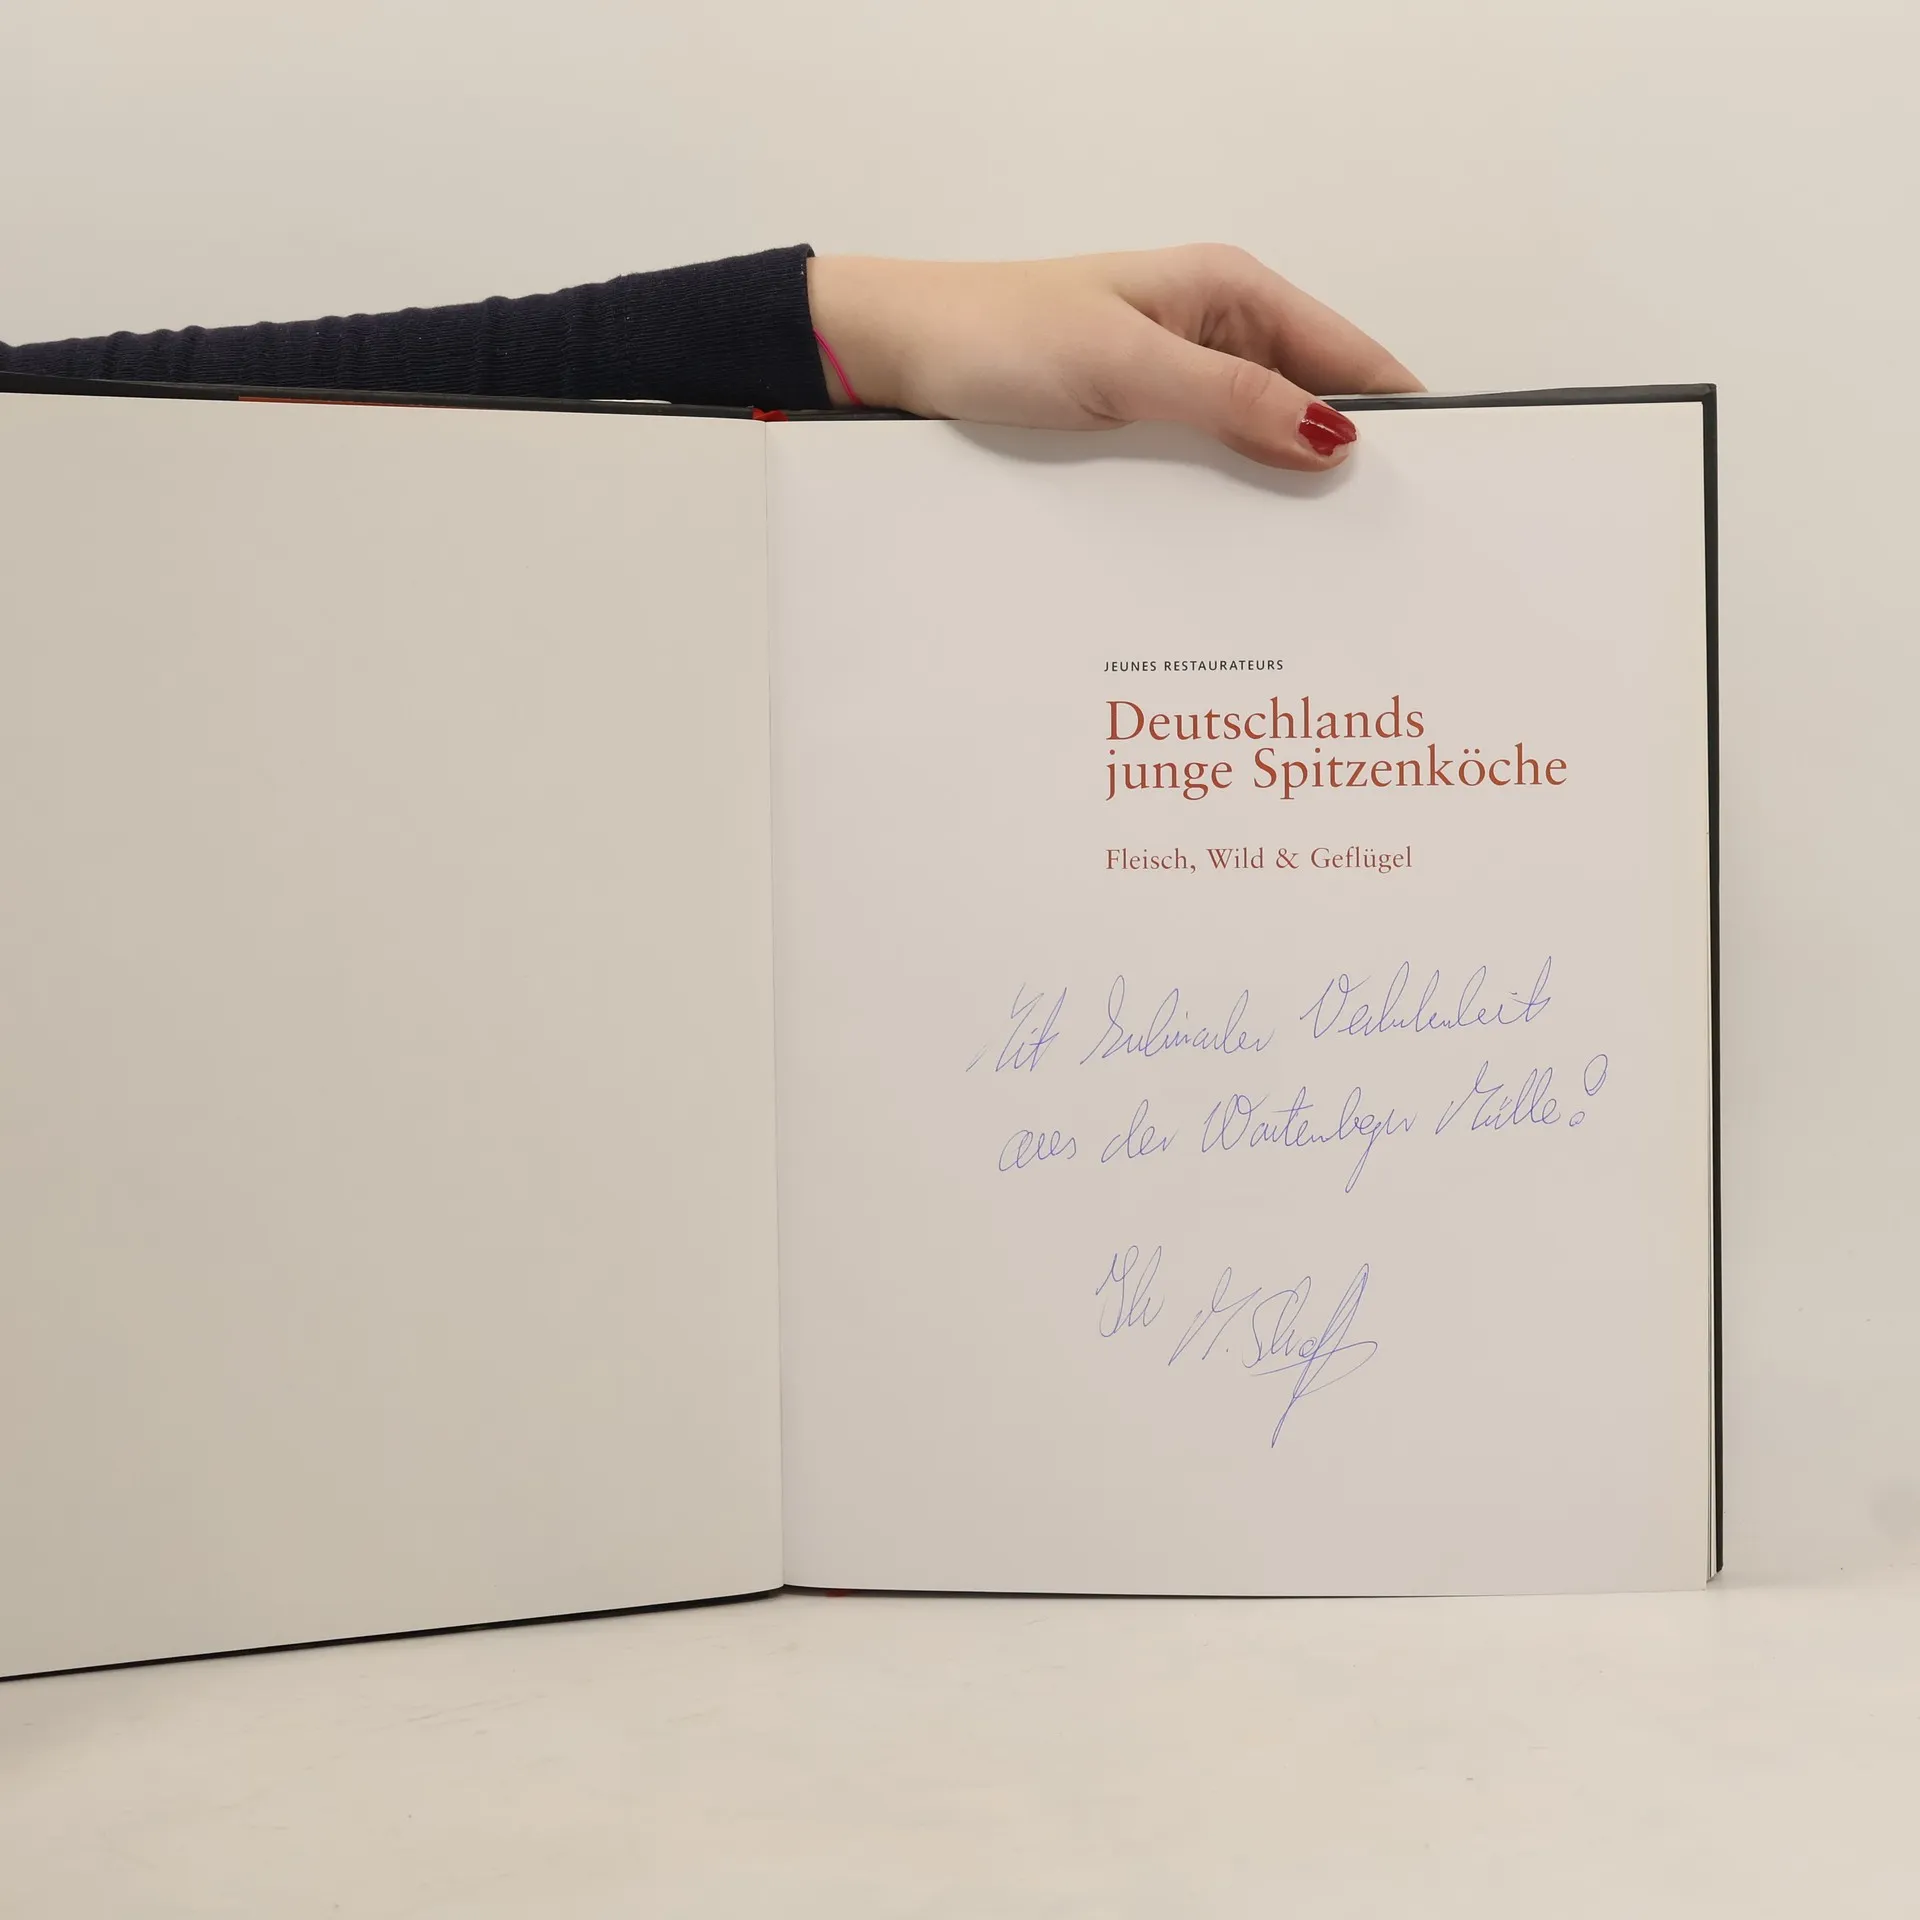 JEUNES RESTAURATEURS
Deutschlands
junge Spitzenköche
Fleisch, Wild & Geflügel
Mit kulinarischer Verbundenheit
aus der Wartenberger Mühle!
Ihr M. Scharff